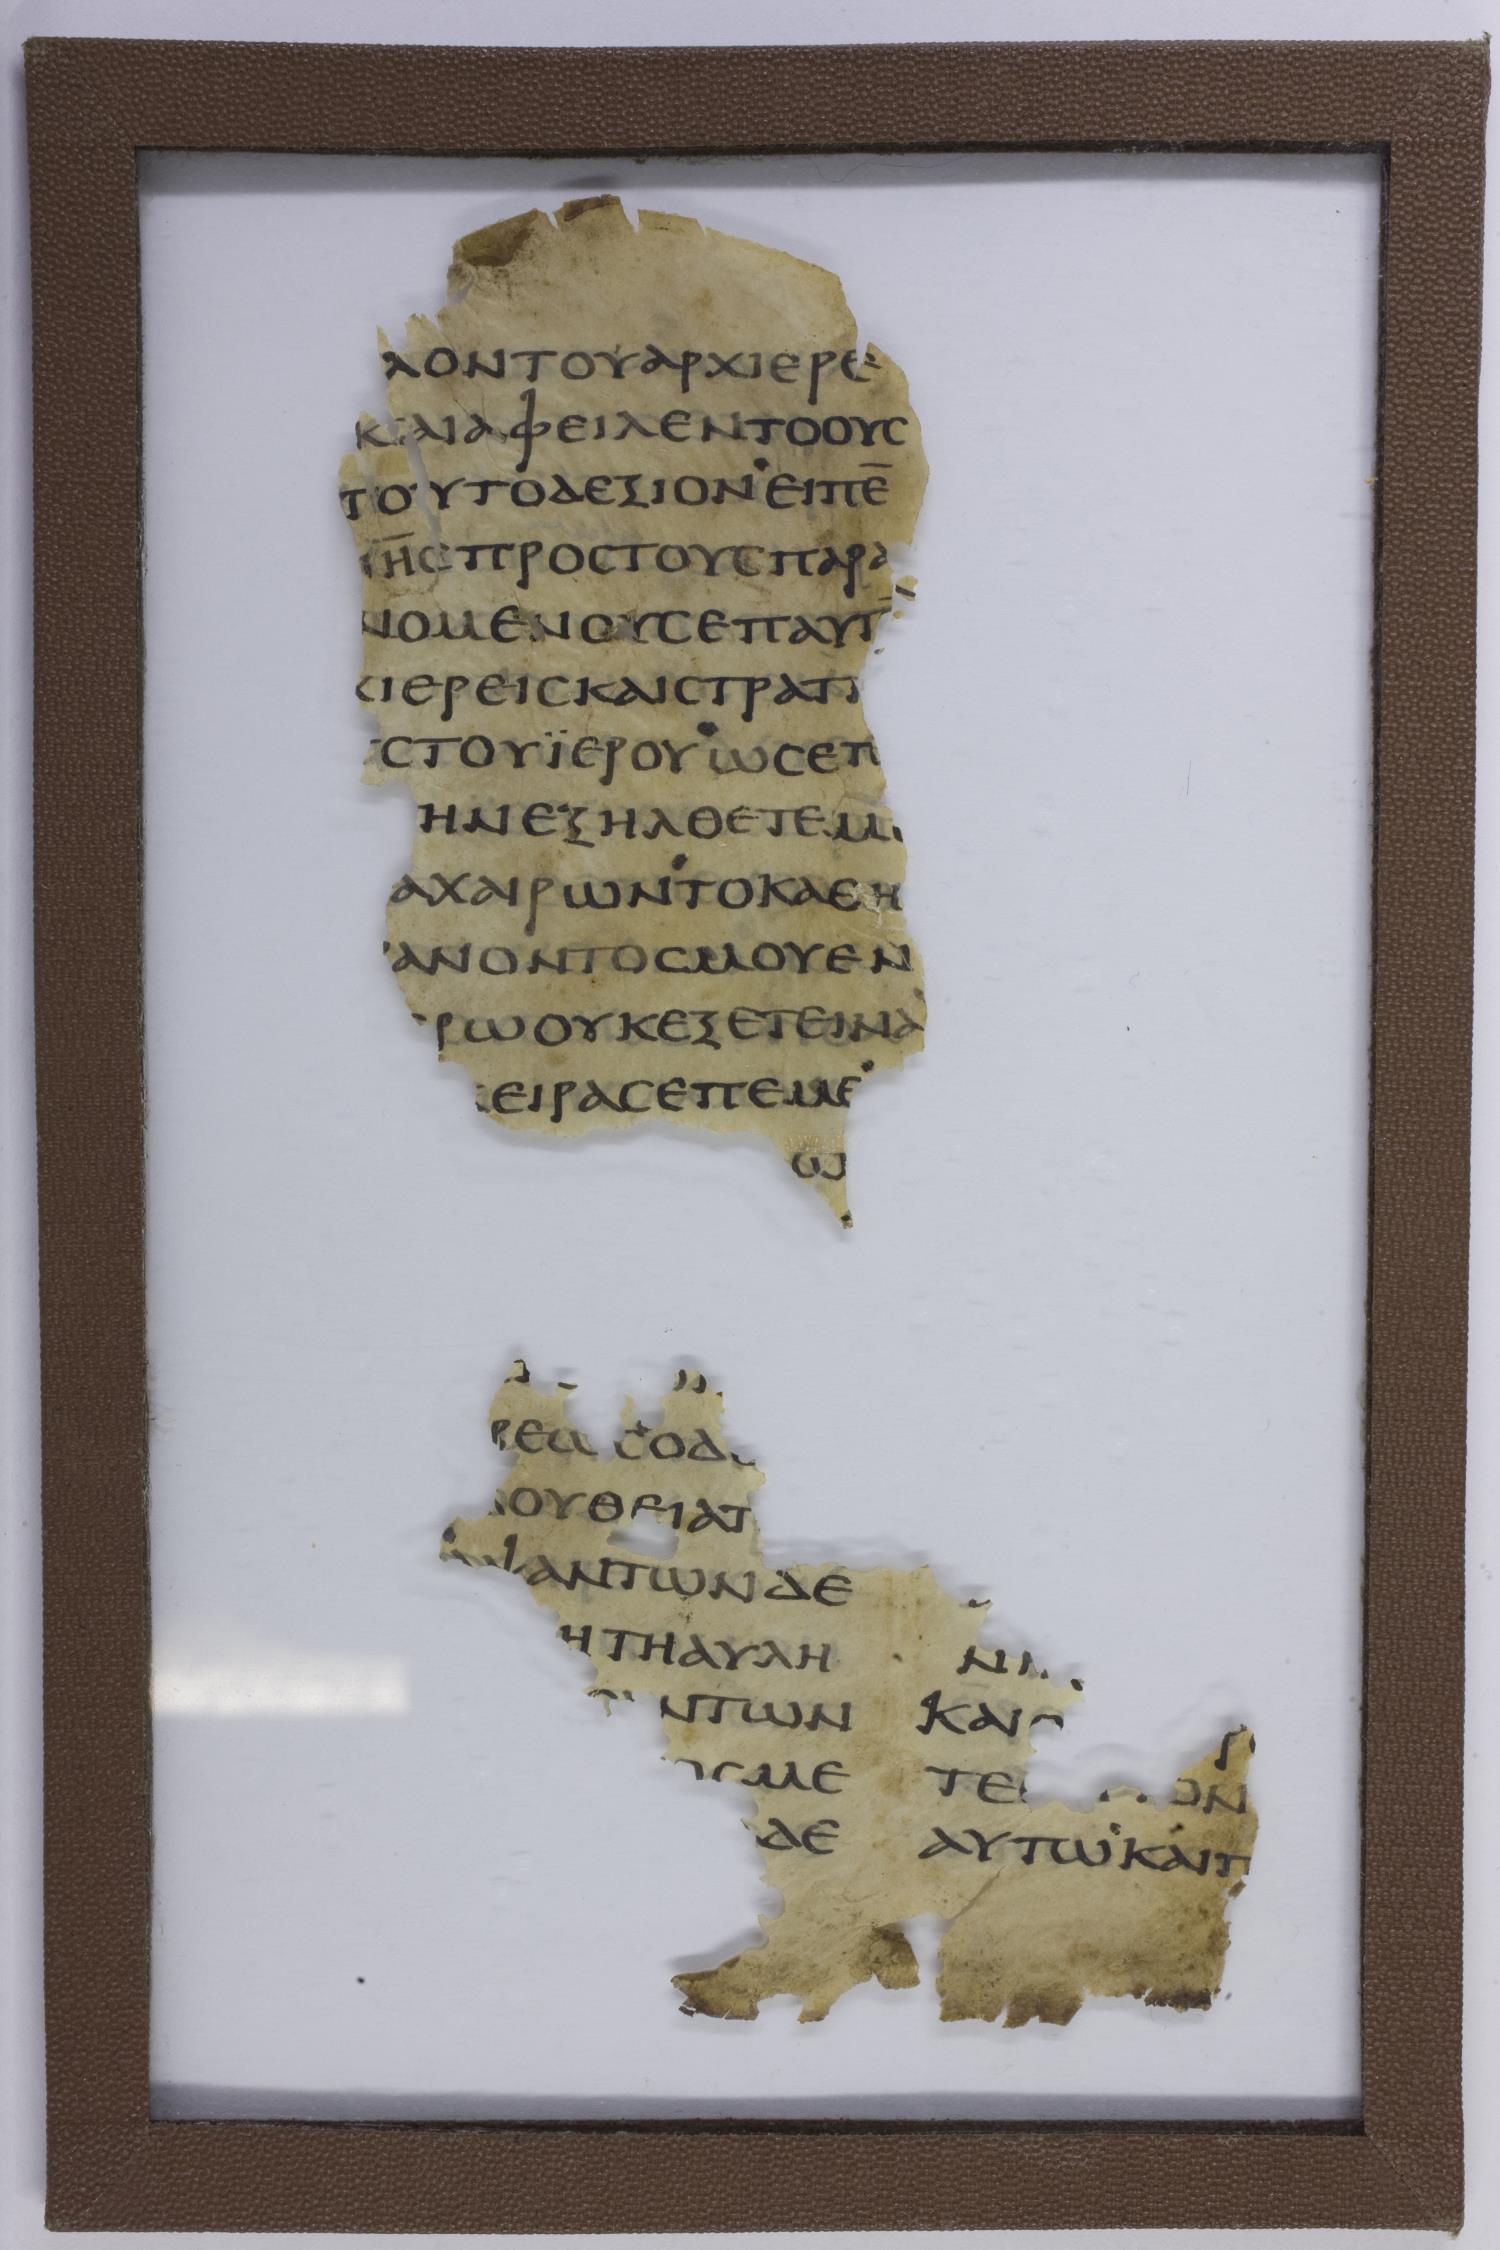 ΛΟΝΤΟΥΑΡΧΙΕΡΕ
ΚΑΙΑΦΕΙΛΕΝΤΟΟΥϹ
ΤΟΥΤΟΔΕΞΙΟΝ·ΕΙΠΕ̅
ΙΗ̅ϹΠΡΟϹΤΟΥϹΠΑΡΑ
ΝΟΜΕΝΟΥϹΕΠΑΥΤ
ΧΙΕΡΕΙϹΚΑΙϹΤΡΑΤΗ
ϹΤΟΥΪΕΡΟΥ·ΩϹΕΠΙ
ΤΗΝΕΞΗΛΘΕΤΕΜ
ΑΧΑΙΡΩΝ·ΤΟΚΑΕΗ
ΑΝΟΝΤΟϹΜΟΥΕΝ
ΕΡΩΟΥΚΕΞΕΤΕΙΝΑ
ΧΕΙΡΑϹΕΠΕΜΕ·
Ω
ΡΕΩϹ·ΟΔ
ΛΟΥΘΕΙΑΠ
ΨΑΝΤΩΝΔΕ
Η ΤΗΑΥΛΗ
ΝΤΩΝ
ΜΕ
ΔΕ
ΝΙ
ΚΑΙΟ
ΤΕ ΟΝ
ΑΥΤΩ·ΚΑΙΠ